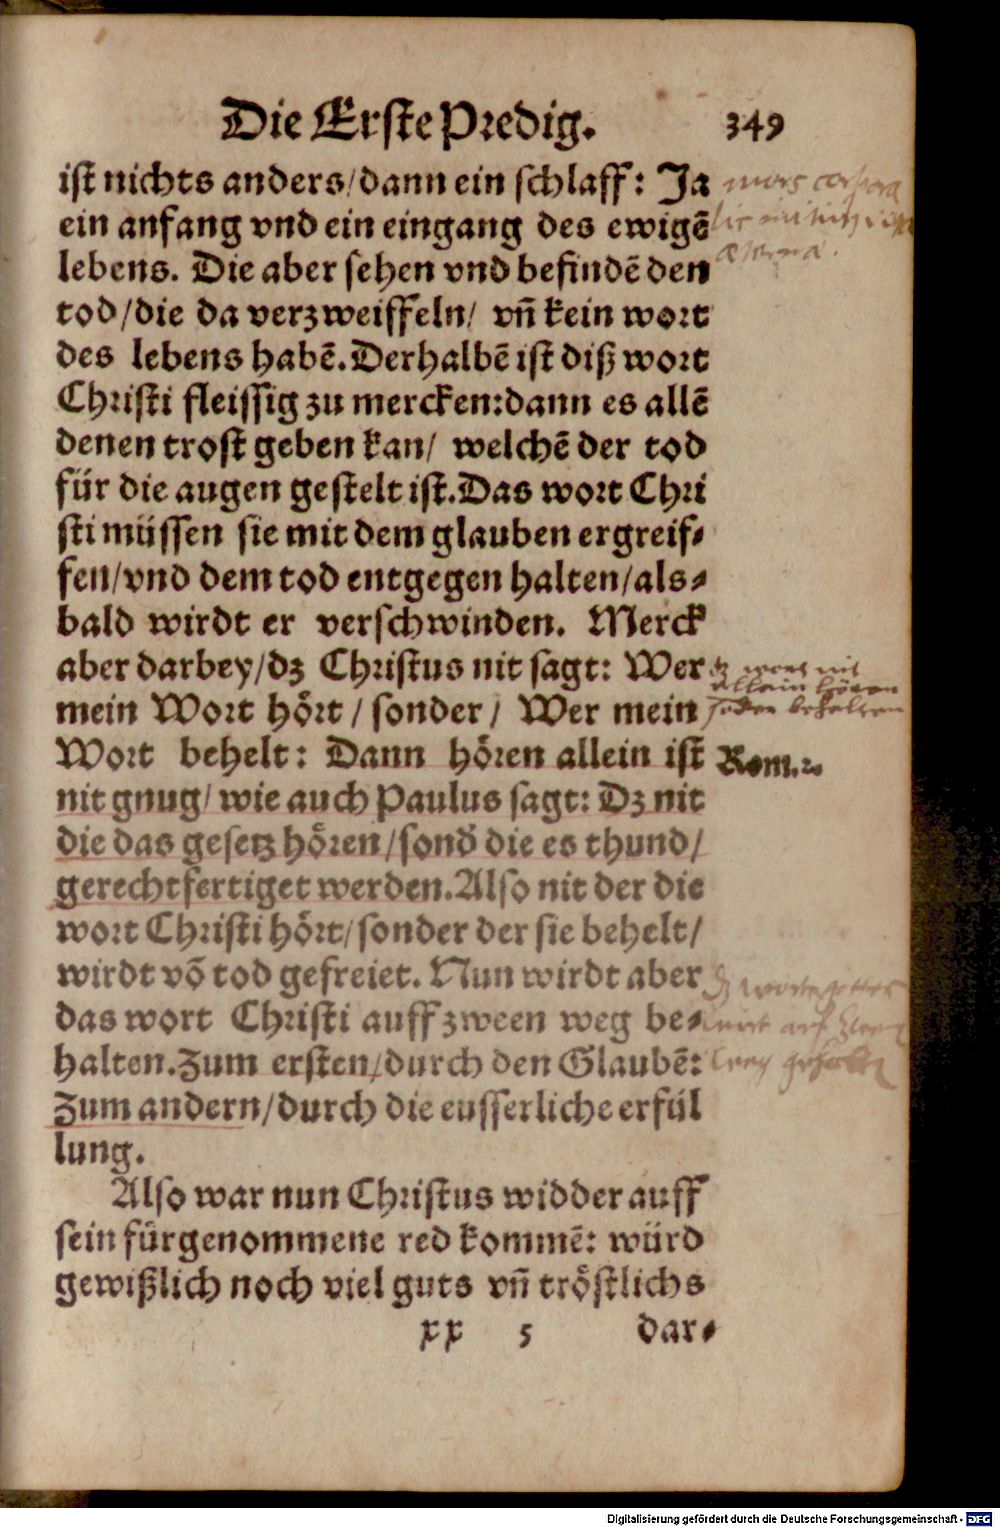 Die Erste Predig. 349
ist nichts anders/dann ein schlaff: Ja
ein anfang vnd ein eingang des ewigē
lebens. Die aber sehen vnd befindē den
tod/die da verzweiffeln/ vn̄ kein wort
des lebens habē. Derhalbē ist diß wort
Christi fleissig zu mercken: dann es allē
denen trost geben kan/ welchē der tod
für die augen gestelt ist. Das wort Chri
sti müssen sie mit dem glauben ergreif⸗
fen/vnd dem tod entgegen halten/als⸗
bald wirdt er verschwinden. Merck
aber darbey/dz Christus nit sagt: Wer
mein Wort hört / sonder / Wer mein
Wort behelt: Dann hören allein ist
nit gnug/ wie auch Paulus sagt: Dz nit
die das gesetz hören/sond̄ die es thund/
gerechtfertiget werden. Also nit der die
wort Christi hört/sonder der sie behelt/
wirdt vō tod gefreiet. Nun wirdt aber
das wort Christi auff zween weg be⸗
halten. Zum ersten/durch den Glaubē:
Zum andern/durch die eusserliche erfül
lung.
Also war nun Christus widder auff
sein fürgenommene red kommē: würd
gewißlich noch viel guts vn̄ tröstlichs
xx 5 dar⸗
mors corpora
lis initium vitæ
æterna.
dz wort nit
allein hören
sonder behalten
Rom. 2.
dz wort gottes
wirt auf zwen
weg gehaltē
Digitalisierung gefördert durch die Deutsche Forschungsgemeinschaft - DFG